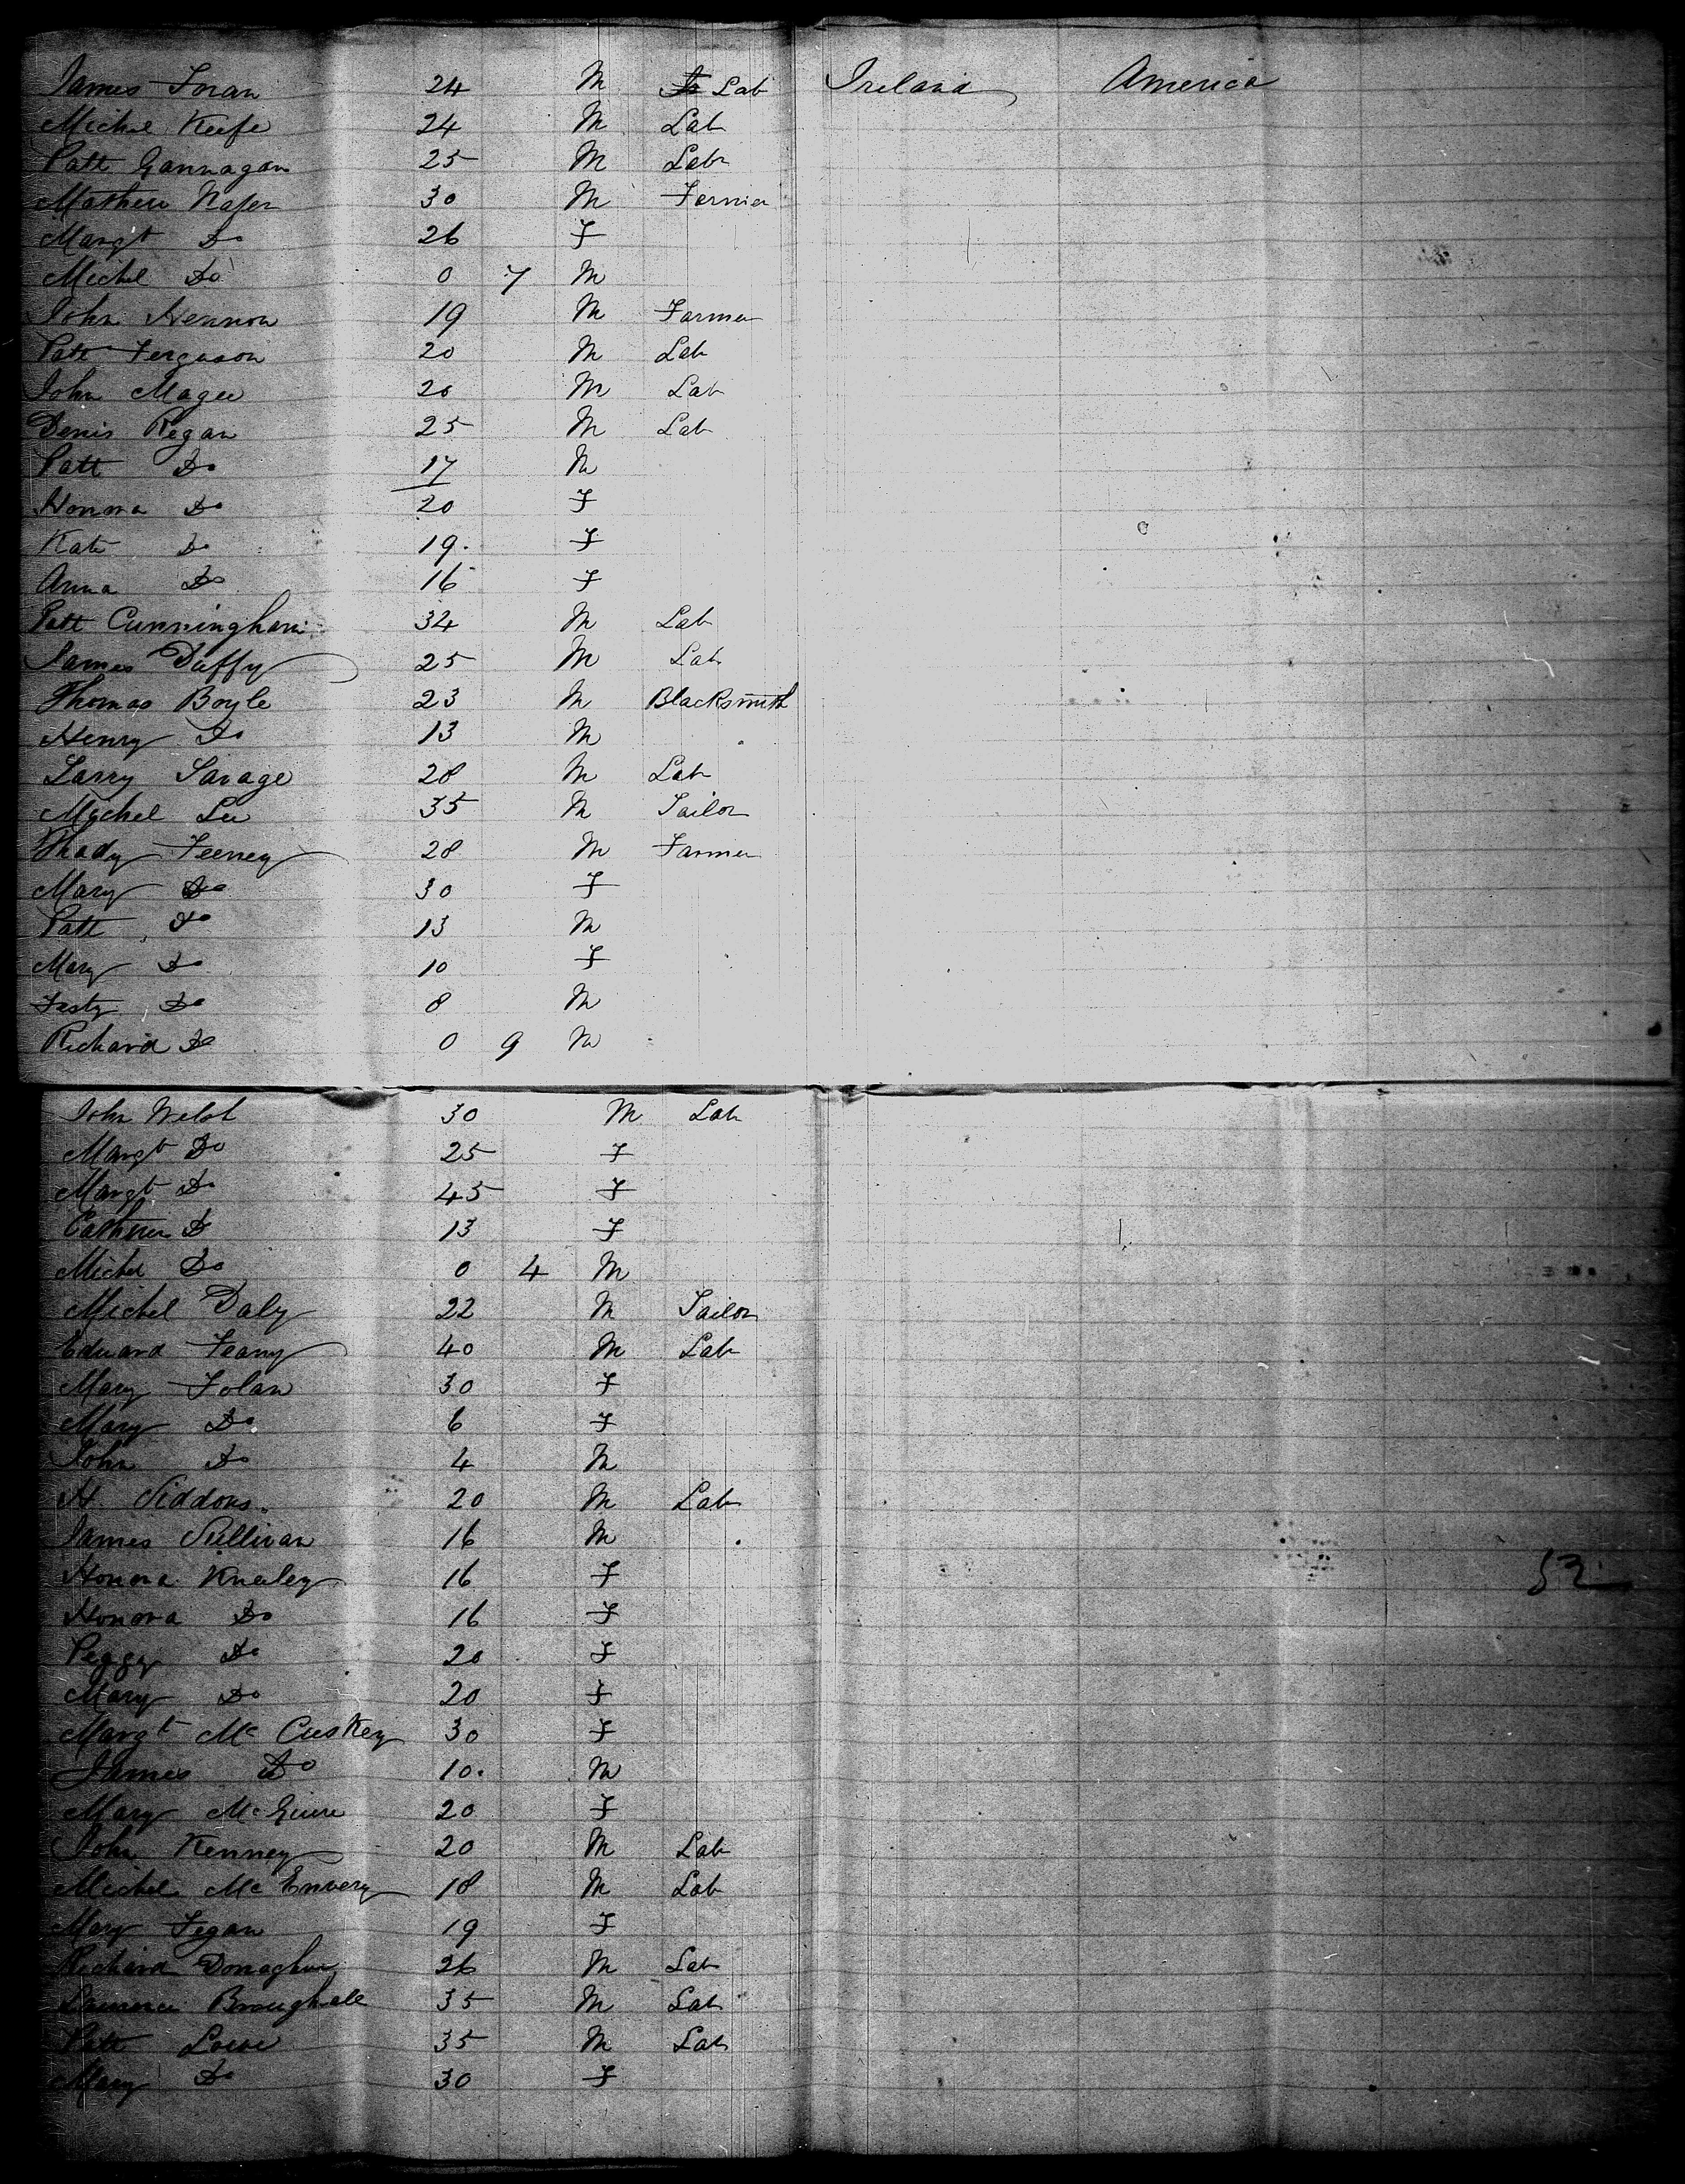 James Foran 24 M Lab Ireland America
Michel Keefe 24 M Lab
Patt Gannagan 25 M Labr
Mathew 30 M Farmer
Margt Do 26 F
Michel Do 0 7 M
John Hennon 19 M Farmer
Patt Ferguson 20 M Lab
John Magee 20 M Lab
Denis Regan 25 M Lab
Patt Do 17 M
Honora Do 20 F
Kate Do 19. F
Anna Do 16 F
Patt Cunningham 34 M Lab
James Duffy 25 M Lab
Thomas Boyle 23 M Blacksmith
Henry Do 13 M
Larry Savage 28 M Lab
Michel Lee 35 M Tailor
Thady Feeney 28 M Farmer
Mary Do 30 F
Patt Do 13 M
Mary Do 10 F
Festy Do 8 M
Richard Do 0 9 M
John Welsh 30 M Lab
Margt Do 25 F
Margt Do 45 F
Catherin Do 13 F
Michel Do 0 4 M
Michel Daly 22 M Tailor
Edward Feany 40 M Lab
Mary Folan 30 F
Mary Do 6 F
John Do 4 M
H. Siddons. 20 M Lab
James Sullivan 16 M
Honora Knealey 16 F
52
Honora Do 16 F
Peggy Do 20 F
Mary Do 20 F
Margt Mc Cuskey 30 F
James Do 10. M
Mary McGuire 20 F
John Kenney 20 M Lab
Michel Mc Envery 18 M Lab
Mary Fegan 19 F
Richard Donaghue 26 M Lab
Laurence Broughall 35 M Lab
Patt Lowe 35 M Lab
Mary Do 30 F